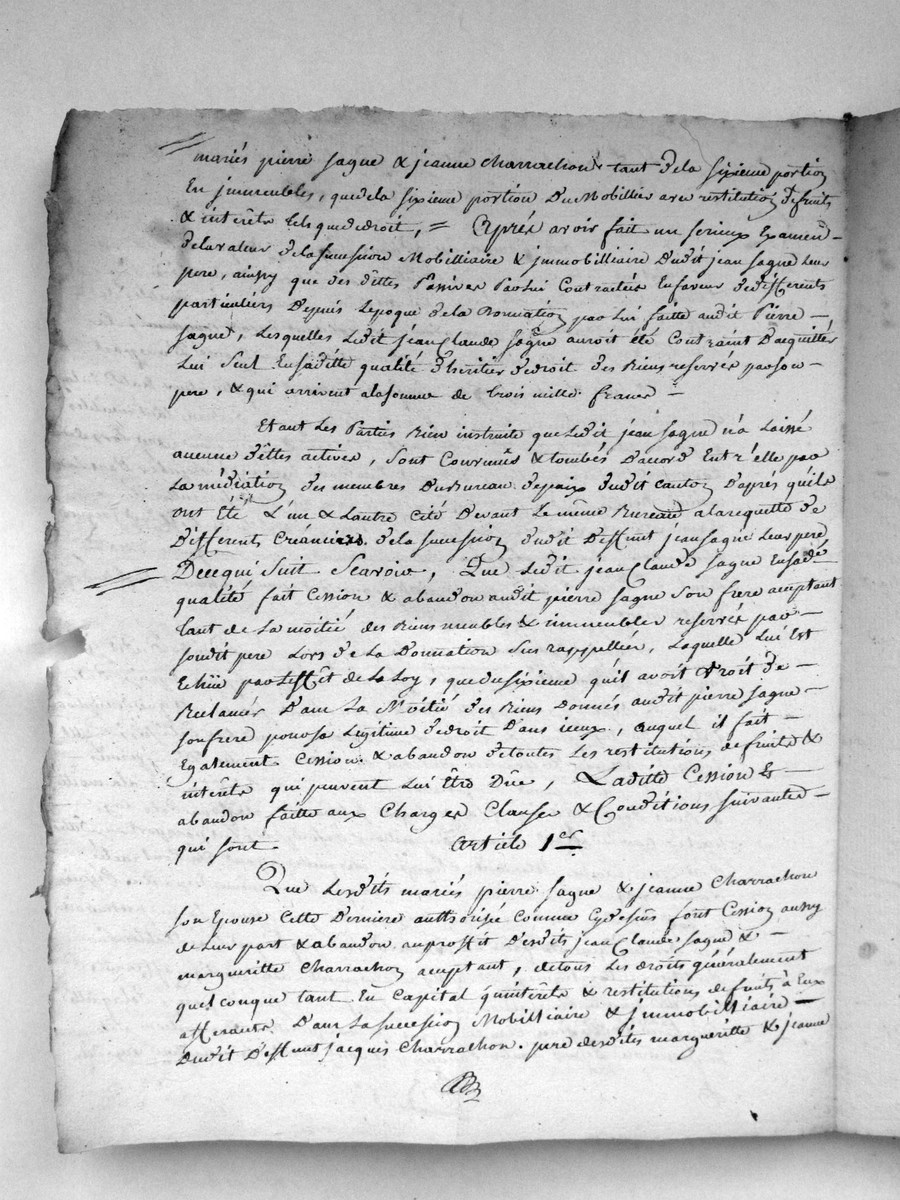 mariés pierre sagne & jeanne charrachon tant dela sixieme portion
En immeubles, quedela sixieme portion Du Mobillier avec restitution defruits
& intérêts tels quededroit, = Après avoir fait un serieux Examen -
delavaleur delasuccession Mobilliaire & jmmobilliaire Dudit jean sagne Leur
pere, ainsy que des dêttes Passives Parlui Contractées Enfaveur dedifferents
particuliers Depuis Lepoque dela Donnation par Lui faitte audit Pierre -
sagne, Lesquelles Ledit jean Claude sagne auroit été Contraint D'acquitter
Lui seul Ensaditte qualité d'heritier dedroit des Biens reservés parson -
pere, & qui arrivent alasomme de trois mille francs -
Etant Les Parties Bien instruite queLedit jean sagne n'a Laissé
aucune dêttes actives, sont Convenûs & tombés D'accord Entr'elle par
La médiation des membres Dubureau depaix dudit canton D'aprés qu'ils
ont été L'un & Lautre cité Devant Le même Bureau alarequette de
Différents Créanciers dela succession dudit Deffunt jean sagne Leur pere
Decequi Suit Scavoir, Que Ledit jean Claude sagne Ensadte
qualité fait Cession & abandon audit pierre sagne son frere acceptant
tant de La moitié des Biens meubles & immeubles reservés par -
sondit pere Lors de La Donnation sus rappellée, Laquelle Lui Est
Echüe par L'effêt de La Loy, que du sixieme qu'il avoit droit de -
Reclamér Dans La Moitié des Biens Donnés audit pierre sagne -
son frere pour sa Légitime dedroit Dans iceux, auquel il fait -
Egalement Cession & abandon detoutes Les restitutions defruits &
intérêts qui peuvent Lui Être Dûe, Laditte Cession Et -
abandon faitte aux Charges Clauses & Conditions suivantes -
qui sont. Article 1er
Que Lesdits mariés pierre sagne & jeanne Charrachon
son Epouse Cette Derniere authorisée comme Cydessus font Cession aussy
de Leur part & abandon auproffit Desdits jean Claude sagne & -
margueritte Charrachon acceptant, detous Les droits généralement
quelconque tant En Capital qu'intérêts & restitutions defruits à Eux
afferants Dans La succession Mobilliaire & jmmobilliaire -
Dudit Deffunt jacques Charrachon pere desdites margueritte & jeanne